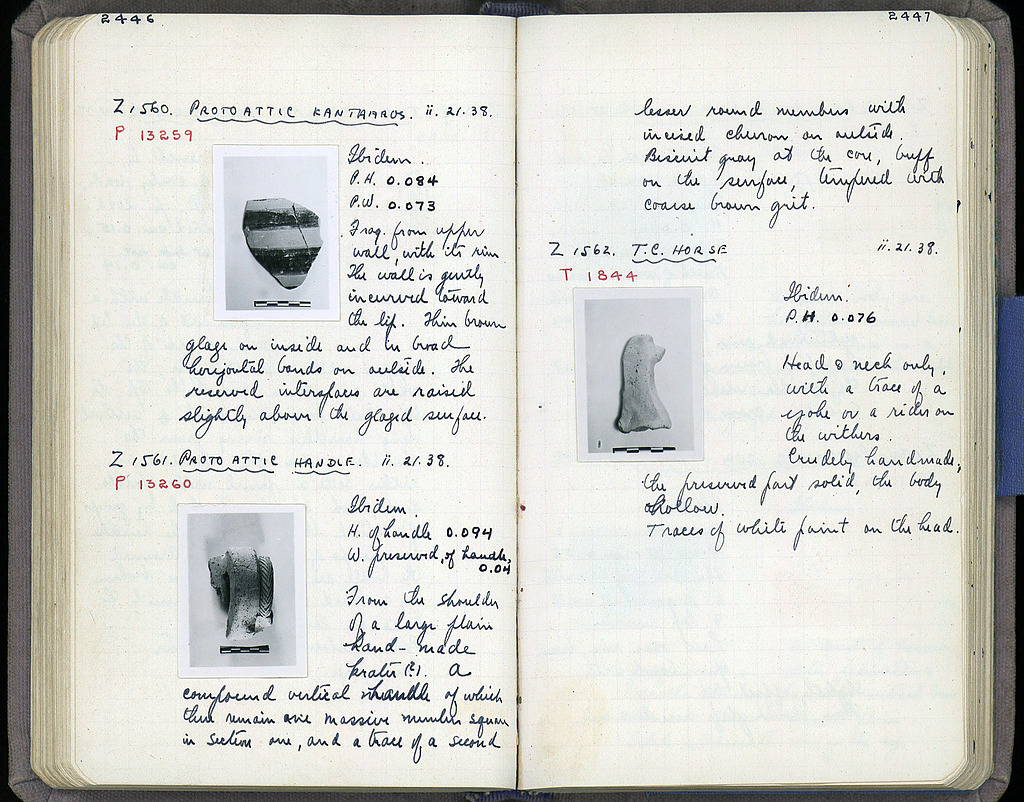 2446
Z 1560. PROTOATTIC KANTHAROS. ii. 21. 38.
P 13259
Ibidem.
P.H. 0.084
P.W. 0.073
Frag. from upper
wall, with its rim
The wall is gently
incurved toward
the lip. Thin brown
glaze on inside and in broad
horizontal bands on outside. The
reserved interspaces are raised
slightly above the glazed surface.
Z 1561. PROTOATTIC HANDLE. ii. 21. 38.
P 13260
Ibidem.
H. of handle 0.094
W. preserved, of handle,
0.04
From the shoulder
of a large plain
hand-made
krater (?). A
compound vertical handle of which
there remain one massive member square
in section one, and a trace of a second
2447
lesser round members with
incised chevron on outside.
Biscuit gray at the core, buff
on the surface, tempered with
coarse brown grit.
Z 1562. T.C. HORSE ii. 21. 38.
T 1844
Ibidem.
P.H. 0.076
Head & neck only,
with a trace of a
yoke or a rider on
the withers.
Crudely handmade,
the preserved part solid, the body
hollow.
Traces of white paint on the head.